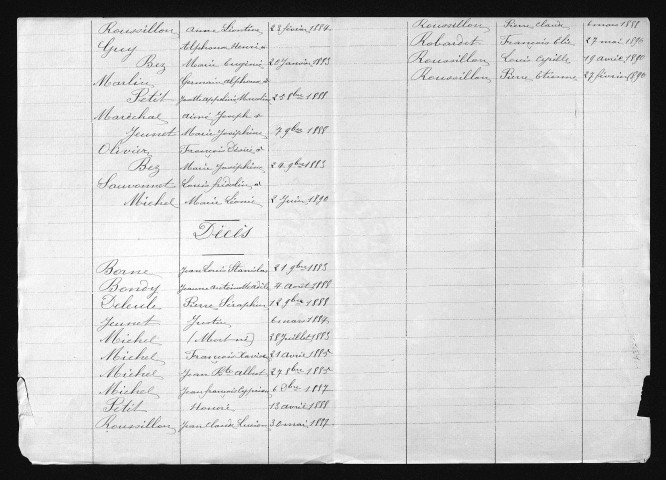 Roussillon Anne Léontine 23 février 1884
Guy Alphonse Henri &
Bez Marie Eugénie 20 Janvier 1883
Marlin Germain Alphonse &
Petit 25 8bre 1888
Maréchal Aimé Joseph &
Jeunet Marie Joséphine 7 9bre 1888
Olivier François Désiré &
Bez Marie Joséphine 24 9bre 1883
Sauvonnet Louis fridolin, &
Michel Marie Léonie 2 Juin 1890
Décès
Borne Jean Louis Stanislas 21 9bre 1883
Bondy Jeanne Antoinette Adèle 4 août 1888
Deleule Pierre Séraphin 12 9bre 1888
Jeunet Justin 6 mars 1884
Michel (Mort né) 28 Juillet 1883
Michel François Xavier 21 avril 1885
Michel Jean Bte Albert 27 8bre 1885
Michel Jean françois Cyprien 6 Xbre 1887
Petit Honoré 13 avril 1888
Roussillon Jean Claude Lucien 30 mai 1887
Roussillon Pierre Claude 6 mars 1888
Robardet François Elie 27 mai 1890
Roussillon Louis Cyrille 19 avril 1890
Roussillon Pierre Etienne 27 février 1890